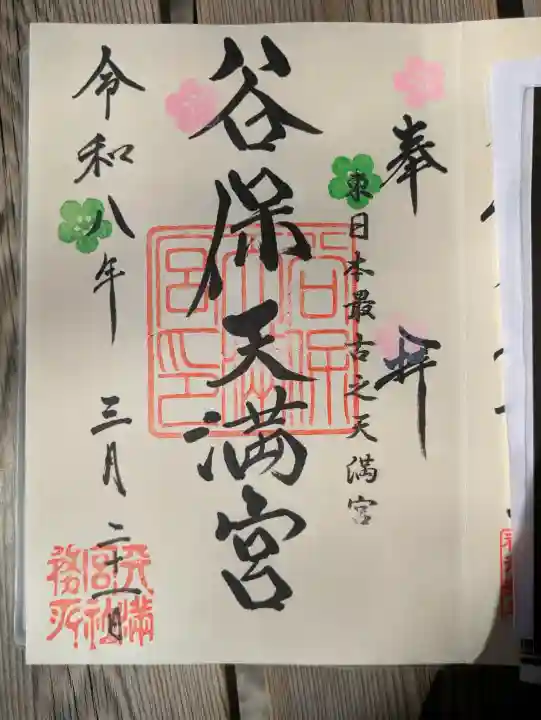 奉拝
東日本最古之天満宮
谷保天満宮
谷保天満宮印
令和八年三月二十一日
天満宮社務所